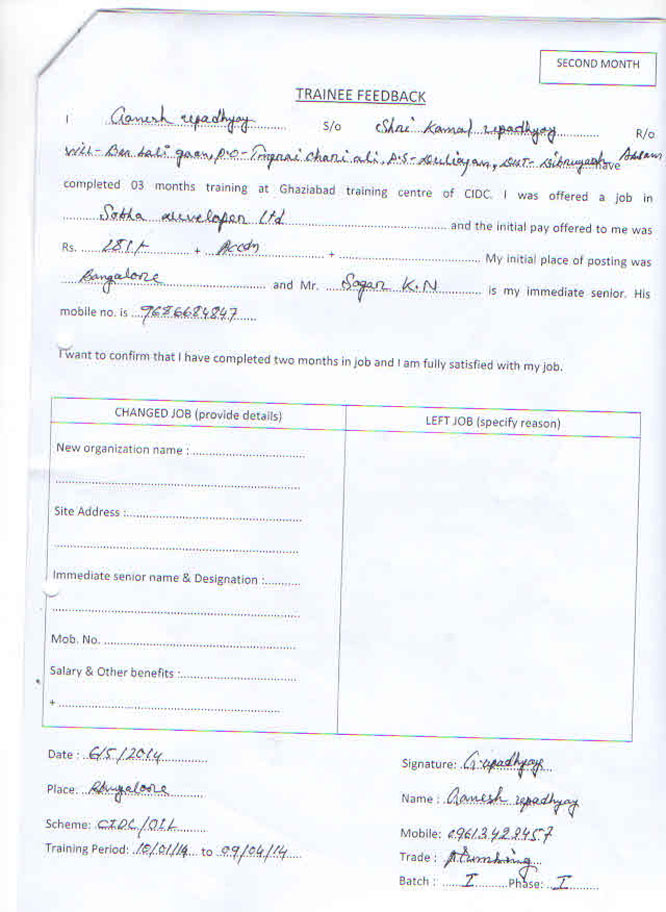 SECOND MONTH
TRAINEE FEEDBACK
I Ganesh upadhyay S/o Shri Kamal upadhyay R/o
Vill- gaon, P.O- Tingrai chariali, P.S- Duliajan, Dist- Dibrugarh Assam have
completed 03 months training at Ghaziabad training centre of CIDC. I was offered a job in
Sobha developer Ltd and the initial pay offered to me was
Rs. 281/- + Accdn + My initial place of posting was
Bangalore and Mr. Sagar K.N is my immediate senior. His
mobile no. is 9686684847
I want to confirm that I have completed two months in job and I am fully satisfied with my job.
CHANGED JOB (provide details)
LEFT JOB (specify reason)
New organization name :
Site Address :
Immediate senior name & Designation :
Mob. No.
Salary & Other benefits :
+
Date : 6/5/2014
Place: Bangalore
Scheme: CIDC/OIL
Training Period: 10/01/14 to 09/04/14
Signature: G.upadhyay
Name : Ganesh upadhyay
Mobile: 09613422457
Trade : Plumbing
Batch : I Phase: I